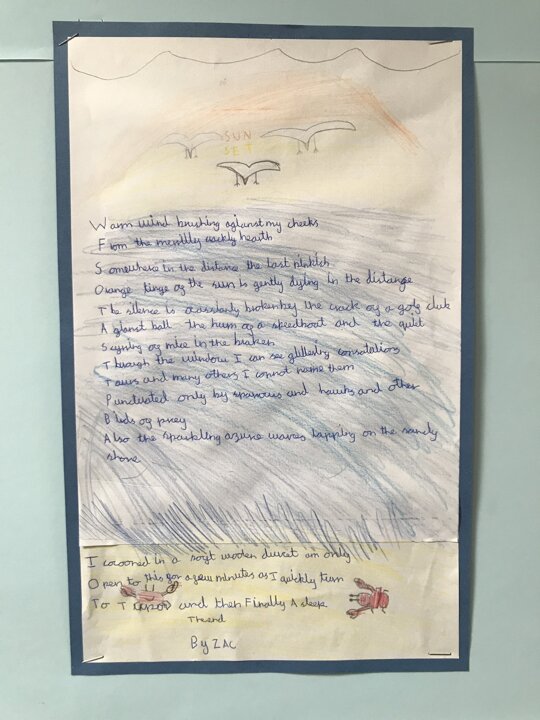 SUN
SET
Warm wind brushing against my cheeks
From the merrily crackly hearth
Somewhere in the distance the last pinkish
Orange tinge of the sun is gently dying in the distance
The silence is broken by the crack of a golf club
Against ball the hum of a speedboat and the quiet
of mice in the braken
Through the window I can see glittering
Taurs and many others I cannot name them
Punctuated only by sparrows and hawks and other
Birds of prey
Also the sparkling azure waves lapping on the sandy
shore
I cocooned in a soft duvet am only
Open to this for a few minutes as I quickly turn
To and then Finally Asleep
The end
By ZAC